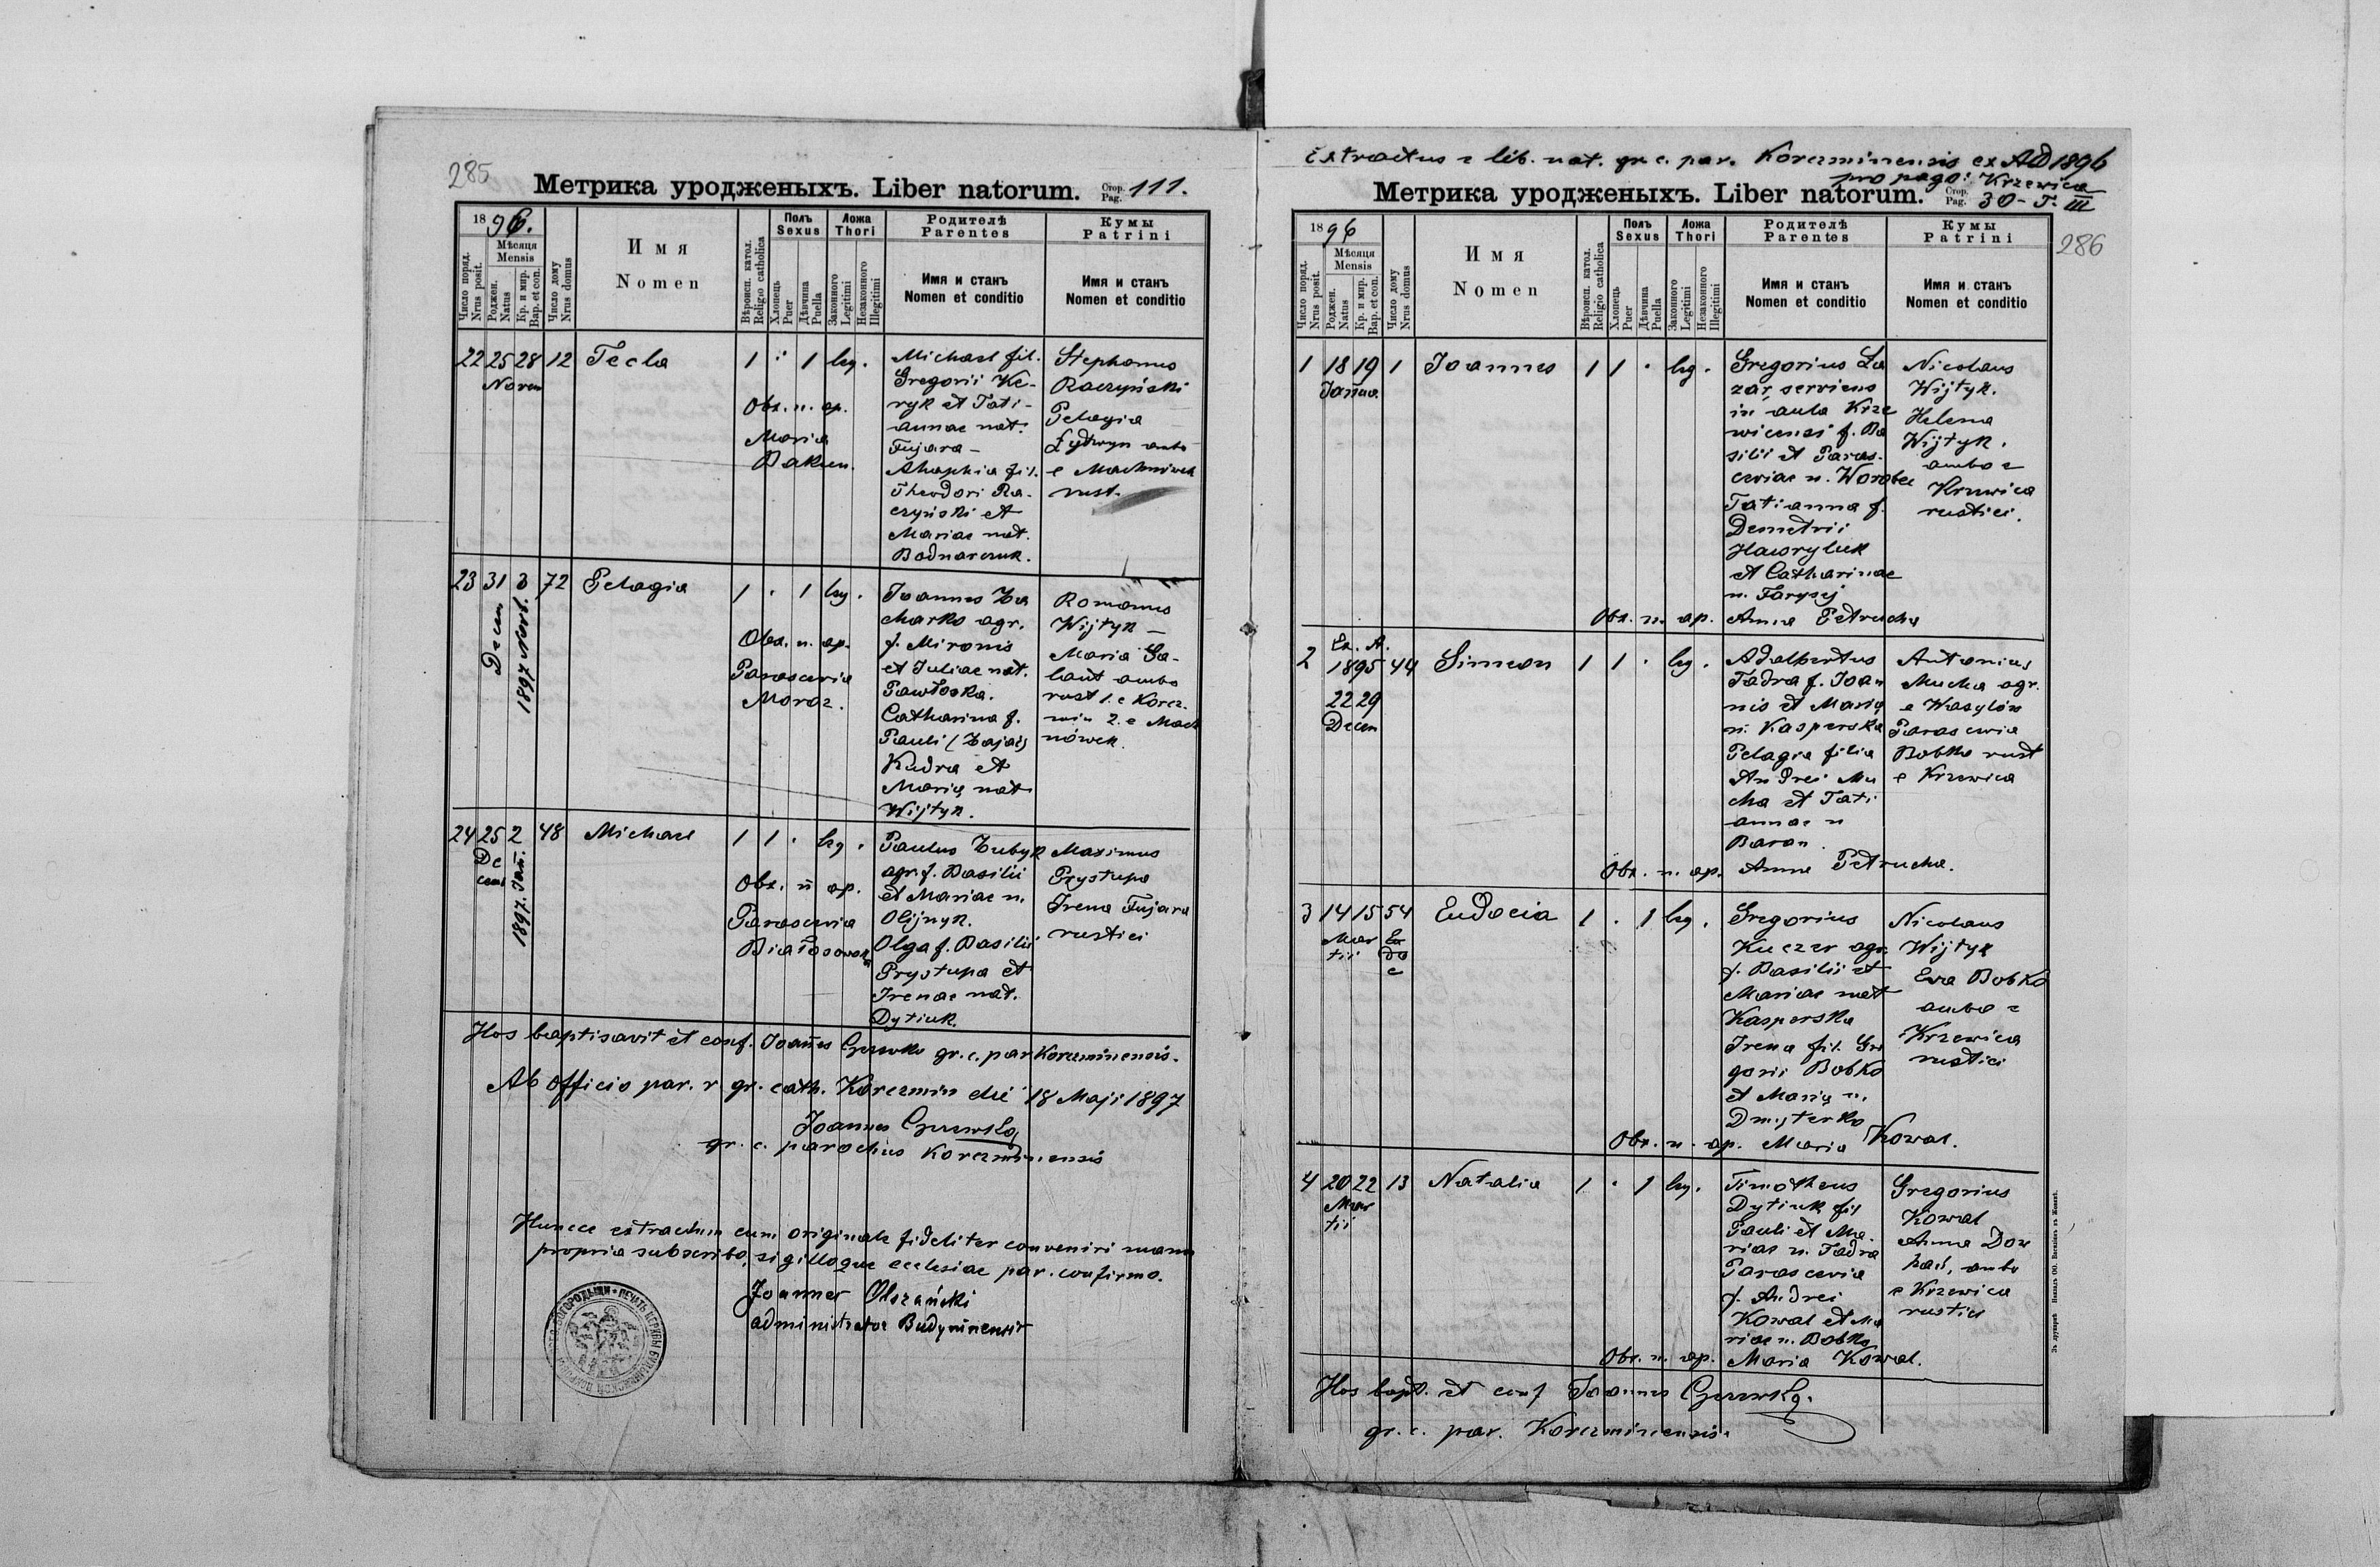 285
Метрика уродженыхъ. Liber natorum. Стор. Pag. 111.
1896.
Число поряд. Nrus posit.
Мѣсяця Mensis
Роджен. Natus
Кр. и мир. Bap. et con.
Число дому Nrus domus
Имя
Nomen
Вѣроисп. катол. Religio catholica
Полъ Sexus
Хлопець Puer
Дѣвчина Puella
Ложа Thori
Законного Legitimi
Незаконного Illegitimi
Родителѣ
Parentes
Имя и станъ
Nomen et conditio
Кумы
Patrini
Имя и станъ
Nomen et conditio
22 25 28 12 Tecla 1 : 1 leg.
Novem
Obs. n. ap.
Maria
Bakun.
Michael fil.
Gregorii Ke-
ryk et Tati-
annae nat.
Fujara -
Ahaphia fil.
Theodori Ra-
czyński et
Mariae nat.
Bodnarczuk.
Stephanus
Raczyński
Pelagia
Żydwyn ambo
e Machnówek
rust.
23 31 3 72 Pelagia 1 . 1 leg.
Decem
1897
Obst. n. ap.
Parascevia
Moroz.
Joannes Za
charko agr.
f. Mironis
et Juliae nat.
Pawłoska.
Catharina f.
Pauli (Zajac)
Kudra et
Marię nat
Wijtyk.
Romanus
Wijtyk -
Maria Ga-
laut ambo
rust 1. e Korcz-
min 2. e Mach
nówek.
24 25 2 48 Michael 1 1 . leg.
De
cem
1897. Jan.
Obs. n ap.
Parascevia
Białosowska
Paulus Zubyk
agr. f. Basilii
et Mariae n.
Olijnyk.
Olga f. Basilii
Prystupa et
Irenae nat.
Dytiuk.
Maximus
Prystupa
Irena Fujara
rustici
Hos baptisavit et conf. Joannes gr. c. par Korczminensis.
Ab officio par. r gr. cath. Korczmin die 18 Maji 1897
Joannes
gr. c. parochus Korczminensis
Hunce extractum cum originale fideliter conveniri manu
propria subscribo, sigilloque ecclesiae par. confirmo.
Joannes Olszański
administrator Budyninensis
Extractus e lib. nat. gr. c. par. Korczminensis ex AD 1896
pro pago: Krzewica
Метрика уродженыхъ. Liber natorum. Стор. Pag. 30 - T. III
286
1896
Число поряд. Nrus posit.
Мѣсяця Mensis
Роджен. Natus
Кр. и мир. Bap. et con.
Число дому Nrus domus
Имя
Nomen
Вѣроисп. катол. Religio catholica
Полъ Sexus
Хлопець Puer
Дѣвчина Puella
Ложа Thori
Законного Legitimi
Незаконного Illegitimi
Родителѣ
Parentes
Имя и станъ
Nomen et conditio
Кумы
Patrini
Имя и станъ
Nomen et conditio
1 18 19 1 Joannes 1 1 . leg.
Januar
Gregorius La
zar, serviens
in aula Krze
wicensi f. Ba
silii et Paras-
ceviae n. Worobec
Tatianna f.
Demetrii
Hawryluk
et Catharinae
n. Farysej
Nicolaus
Wijtyk.
Helena
Wijtyk.
ambo e
Krzewica
rustici.
Obs. n. ap. Anna Petrucha
2 Ex. A.
1895 44 Simeon 1 1 . leg.
22 29
Decem
Adalbertus
Fadra f. Joan
nis et Marię
n. Kasperska
Pelagia filia
Andrei Mu
cha et Tati
annae n
Baran.
Antonius
Mucha agr.
e Wasylów
Parascevia
Bobko rust
e Krzewica
Obs. n. ap. Anna Petrucha.
3 14 15 54 Eudocia 1 . 1 leg.
Mar
tii
Gregorius
Kuczer agr.
f. Basilii et
Mariae nat
Kasperska
Irena fil. Gre
gorii Bobko
et Marię n.
Dmyterko
Nicolaus
Wijtyk
Eva Bobko
ambo e
Krzewica
rustici
Obs. n. ap. Maria Kowal.
4 20 22 13 Natalia 1 . 1 leg.
Mar
tii
Timotheus
Dytiuk fil
Pauli et Ma-
riae n. Fadra
Parascevia
f. Andrei
Kowal et Ma
riae n. Bobko
Gregorius
Kowal
Anna
ambo
e Krzewica
rustici
Obs. n. ap. Maria Kowal.
Hos bapt. et conf Joannes
gr. c. par. Korczminensis.